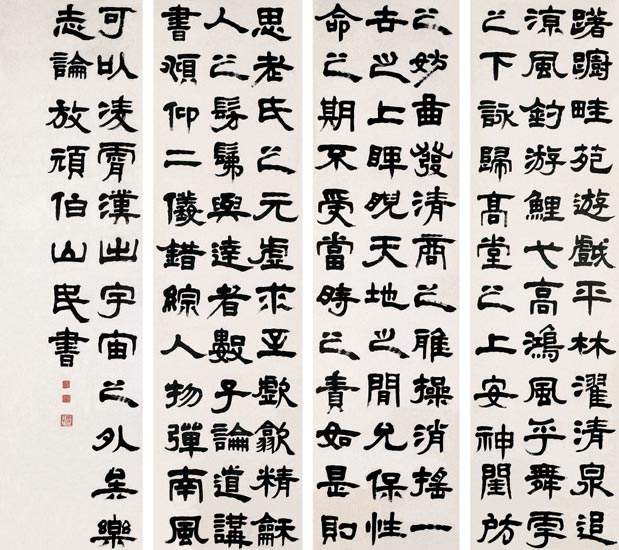 躇蹰畦苑遊戲平林濯清泉追
涼風釣游鯉弋高鴻風乎舞雩
之下詠歸高堂之上安神閨房
之妙曲發清商之雅操消搖一
世之上睥睨天地之間允保性
命之期不受當時之責如是則
思老氏之元虛求至歔歙精龢
人之髣髴與達者數子論道講
書頫仰二儀錯綜人物彈南風
可以凌霄漢出宇宙之外矣樂
志論放頑伯山民書